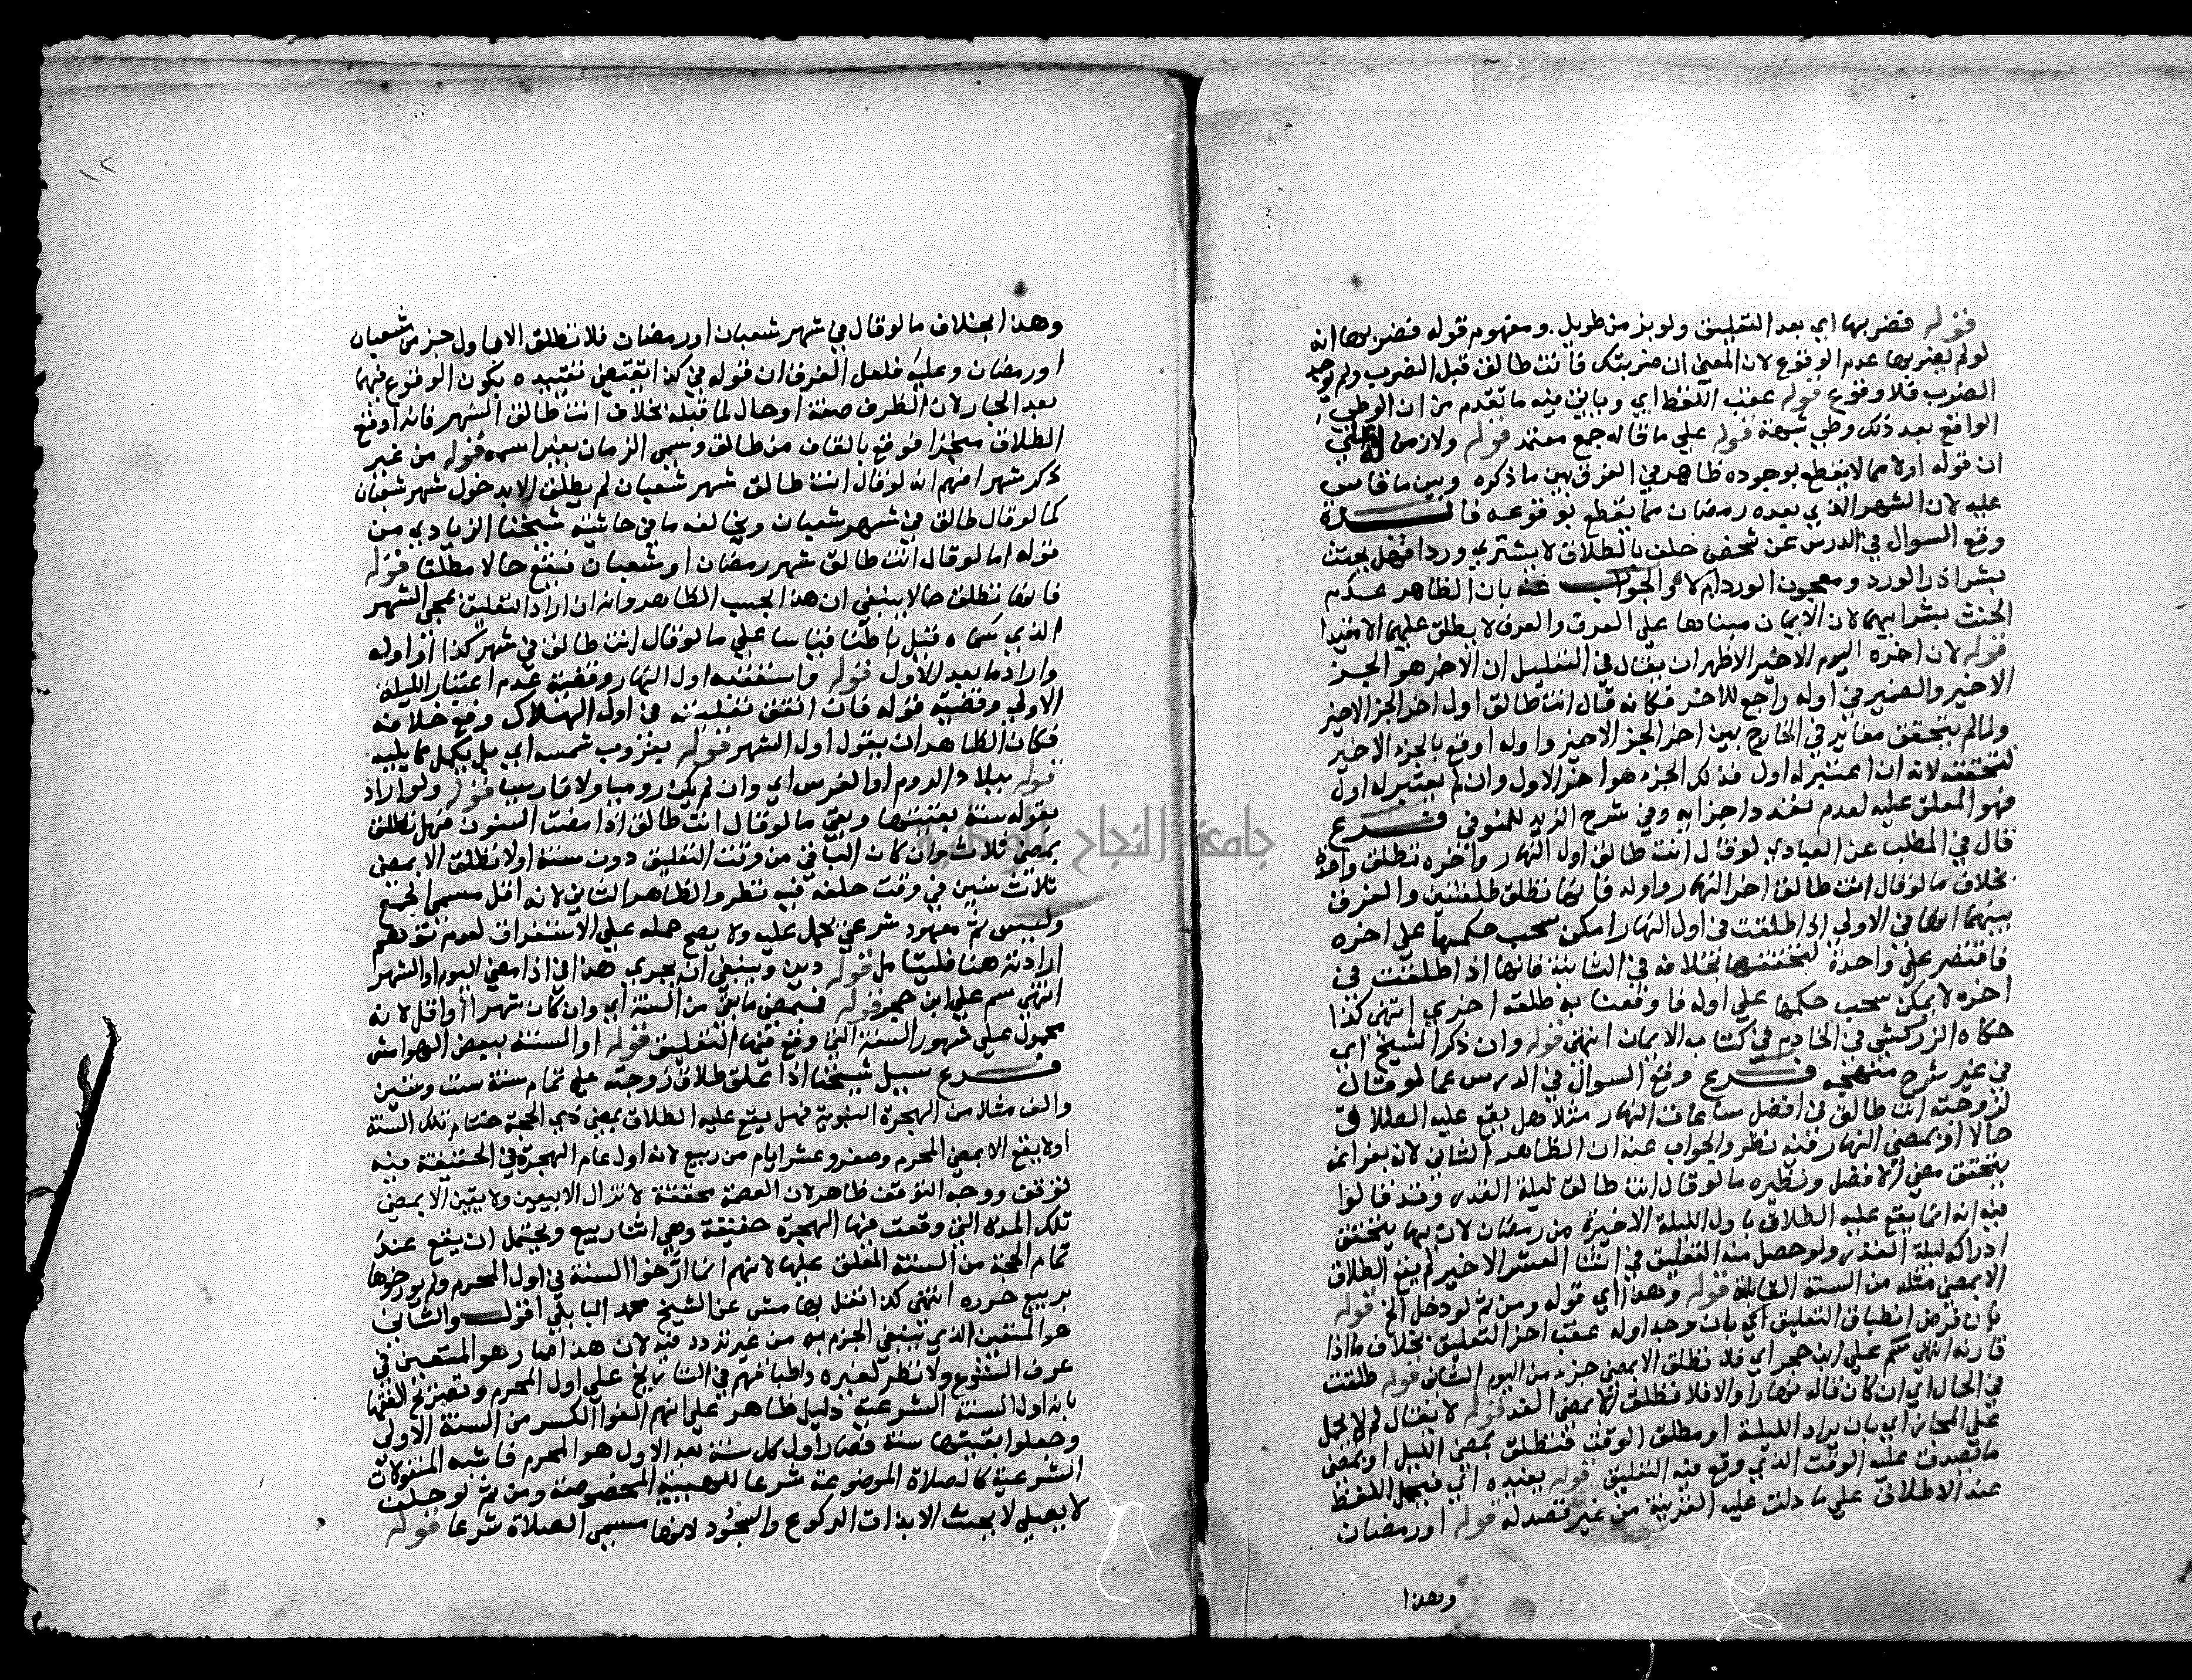 قوله فضربها اي بعد التعليق ولو بزمن طويل ومفهوم قوله فضربها انه
لو لم يضربها عدم الوقوع لان المعنى ان ضربتك فانت طالق قبل الضرب ولم يوجد
الضرب فلا وقوع قوله عقب اللفظ اي وياتي فيه ما تقدم من ان الوطي
الواقع بعد ذلك وطي شبهة قوله على ما قاله جمع معتمد قوله ولازمن
ان قوله اولا مما لا يقطع بوجوده ظاهر في الفرق بين ما ذكره وبين ما قاس
عليه لان الشهر الذي بعده رمضان مما يقطع بوقوعه فائدة
وقع السوال في الدرس عن شخص حلف بالطلاق لا يشتري وردا فهل يحنث
بشرا زر الورد ومعجون الورد ام لا والجواب عنه بان الظاهر عدم
الحنث بشرائهما لان الايمان مبناها على العرف والعرف لا يطلق عليهما الا مقيدا
قوله لان اخره اليوم الاخير الاظهر ان يقال في التعليل ان الاخر هو الجز
الاخير والضمير في اوله راجع للاخر فكانه قال انت طالق اول اخر الجز الاخير
ولما لم يتحقق مغايرة في الخارج بين اخر الجز الاخير واوله اوقع بالجزء الاخير
لتحققه لانه ان اعتبر له اول فذلك الجزء هو اخر الاول وان لم يعتبر له اول
فهو المعلق عليه لعدم تعدد اجزايه وفي شرح الزبد للمنوفي فرع
قال في المطلب عن العبادي لو قال انت طالق اول النهار واخره تطلق واحدة
بخلاف ما لو قال انت طالق اخر النهار واوله فانها تطلق طلقتين والفرق
بينهما انها في الاولى اذا طلقت في اول النهار امكن سحب حكمها على اخره
فاقتصر على واحدة لتحققها بخلافه في الثانية فانها اذا طلقت في
اخره لا يمكن سحب حكمها على اوله فاوقعنا به طلقة اخرى انتهى كذا
حكاه الزركشي في الخادم في كتاب الايمان انتهى قوله وان ذكر الشيخ اي
في غير شرح منهجه فرع وقع السوال في الدرس عما لو قال
لزوجته انت طالق في افضل ساعات النهار مثلا هل يقع عليه الطلاق
حالا او بمضي النهار فيه نظر والجواب عنه ان الظاهر الثاني لان بفراغه
يتحقق مضي الافضل ونظيره ما لو قال انت طالق ليلة القدر وقد قالوا
فيه انه انما يقع عليه الطلاق باول الليلة الاخيرة من رمضان لان بها يتحقق
ادراكه ليلة القدر ولو حصل منه التعليق في اثنا العشر الاخير لم يقع الطلاق
الا بمضي مثله من السنة القابلة قوله وهذا اي قوله ومن ثم لو دخل الخ قوله
بان فرض انطباق التعليق اي بان وجد اوله عقب اخر التعليق بخلاف ما اذا
قارنه انتهى سم على ابن حجر اي فلا تطلق الا بمضي جزء من اليوم الثاني قوله طلقت
في الحال اي ان كان قاله نهارا والا فلا تطلق الا بمضي الغد قوله لا يقال لم لا يحمل
على المجاز اي بان يراد الليلة او مطلق الوقت فتطلق بمضي الليل او بمضي
ما تصدق عليه الوقت الذي وقع فيه التعليق قوله يعنيده اي فيحمل اللفظ
عند الاطلاق على ما دلت عليه القرينة من غير قصد له قوله او رمضان
وهذا
وهذا بخلاف ما لو قال في شهر شعبان او رمضان فلا تطلق الا باول جز من شعبان
او رمضان وعليه فلعل الفرق ان قوله في كذا يقتضي تقييده بكون الوقوع فيهما
بعد الجار لان الظرف صفة او حال لما قبله بخلاف انت طالق الشهر فانه اوقع
الطلاق منجزا فوقع بالقاف من طالق وسمى الزمان بغير اسمه قوله من غير
ذكر شهر افهم انه لو قال انت طالق شهر شعبان لم يطلق الا بدخول شهر شعبان
كما لو قال طالق في شهر شعبان ويخالفه ما في حاشية شيخنا الزيادي من
قوله اما لو قال انت طالق شهر رمضان او شعبان فيقع حالا مطلقا قوله
فانها تطلق حالا ينبغي ان هذا بحسب الظاهر وانه ان اراد التعليق بمجي الشهر
الذي سماه قبل باطنا قياسا على ما لو قال انت طالق في شهر كذا او اوله
واراد ما بعد الاول قوله واستغنه اول النهار وقضية عدم اعتبار الليلة
الاولى وقضية قوله فان اتفق تعليقه في اول الهلاك وقع خلافه
فكان الظاهر ان يقول اول الشهر قوله بغروب شمسه اي بل يكمل مما يليه
قوله ببلاد الروم او الفرس اي وان لم يكن روميا ولا فارسيا قوله ولو اراد
بقوله سنة بقيتها وبقي ما لو قال انت طالق اذا مضت السنون فهل تطلق
بمضي ثلاث وان كان الباقي من وقت التعليق دون سنة او لا تطلق الا بمضي
ثلاث سنين في وقت حلفه فيه نظر والظاهر الثاني لانه اقل مسمى الجمع
وليس ثم معهود شرعي يحمل عليه ولا يصح حمله على الاستغراق لعدم توهم
ارادته هنا فليتامل قوله دين وينبغي ان يجري هذا في اذا مضى اليوم او الشهر
انتهى سم على ابن حجر قوله فبمضي ما بقي من السنة اي وان كان شهرا او اقل لانه
محمول على شهور السنة التي وقع فيها التعليق قوله او السنة ببعض الهوامش
فرع سيل شيخنا اذا علق طلاق زوجته على تمام سنة ست وستين
والف مثلا من الهجرة النبوية فهل يقع عليه الطلاق بمضي ذي الحجة ختام تلك السنة
او لا يقع الا بمضي المحرم وصفر وعشر ايام من ربيع لانه اول عام الهجرة في الحقيقة فيه
توقف ووجه التوقف ظاهر لان العصمة محققة لا تزال الا بيقين ولا يقين الا بمضي
تلك المدة التي وقعت فيها الهجرة حقيقة وهي اثنا ربيع ويحتمل ان يقع عند
تمام الحجة من السنة المعلق عليها لانهم انما ارخوا السنة في اول المحرم ولم يورخوها
بربيع حرره انتهى كذا نقل بهامش عن الشيخ محمد البابلي اقول والثاني
هو المتعين الذي ينبغي الجزم به من غير تردد فيه لان هذا صار هو المتعين في
عرف الشرع ولا نظر لغيره واطباقهم في التاريخ على اول المحرم وتصريح الفقها
بانه اول السنة الشرعية دليل ظاهر على انهم الغوا الكسر من السنة الاولى
وجعلوا بقيتها سنة فصار اول كل سنة بعد الاول هو المحرم فاشبه المنقولات
الشرعية كالصلاة الموضوعة شرعا للهيئة المخصوصة ومن ثم لو حلف
لا يصلي لا يحنث الا بذات الركوع والسجود لانها مسمى الصلاة شرعا قوله
جامعة النجاح الوطنية
١٢